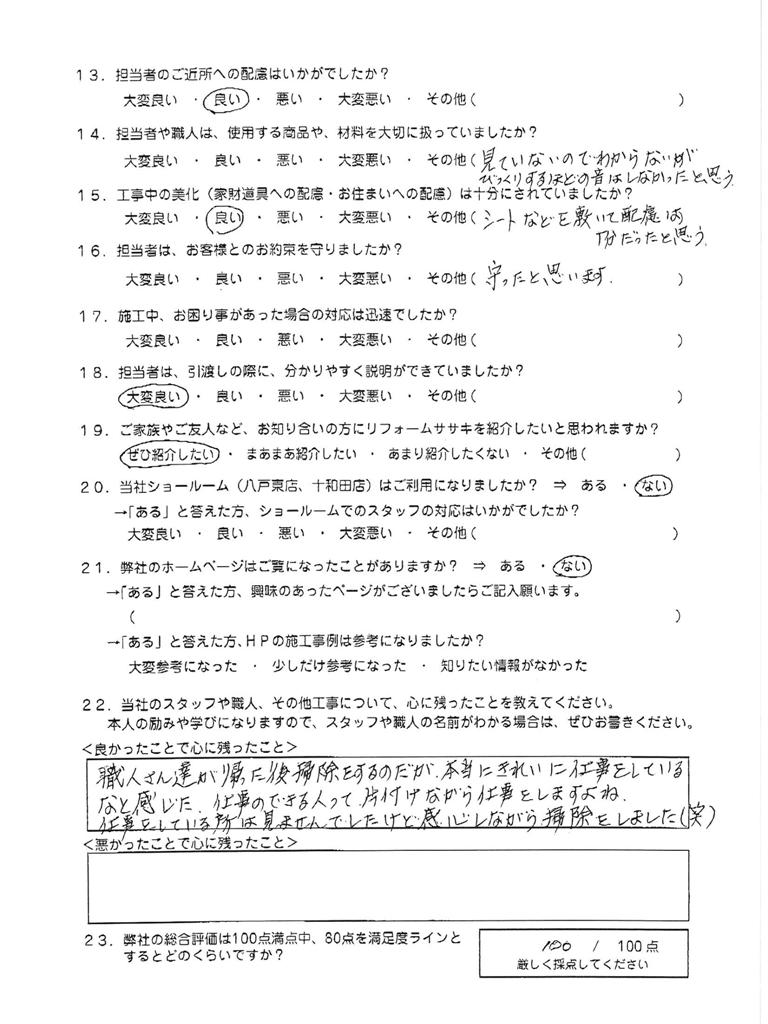 13．担当者のご近所への配慮はいかがでしたか？
大変良い ・ 良い ・ 悪い ・ 大変悪い ・ その他（ ）
14．担当者や職人は、使用する商品や、材料を大切に扱っていましたか？
大変良い ・ 良い ・ 悪い ・ 大変悪い ・ その他（ 見ていないのでわからないが
びっくりするほどの音はしなかったと思う
15．工事中の美化（家財道具への配慮・お住まいへの配慮）は十分にされていましたか？
大変良い ・ 良い ・ 悪い ・ 大変悪い ・ その他（ シートなどを敷いて配慮は
十分だったと思う。
16．担当者は、お客様とのお約束を守りましたか？
大変良い ・ 良い ・ 悪い ・ 大変悪い ・ その他（ 守ったと思います. ）
17．施工中、お困り事があった場合の対応は迅速でしたか？
大変良い ・ 良い ・ 悪い ・ 大変悪い ・ その他（ ）
18．担当者は、引渡しの際に、分かりやすく説明ができていましたか？
大変良い ・ 良い ・ 悪い ・ 大変悪い ・ その他（ ）
19．ご家族やご友人など、お知り合いの方にリフォームササキを紹介したいと思われますか？
ぜひ紹介したい ・ まあまあ紹介したい ・ あまり紹介したくない ・ その他（ ）
20．当社ショールーム（八戸東店、十和田店）はご利用になりましたか？ ⇒ ある ・ ない
→「ある」と答えた方、ショールームでのスタッフの対応はいかがでしたか？
大変良い ・ 良い ・ 悪い ・ 大変悪い ・ その他（ ）
21．弊社のホームページはご覧になったことがありますか？ ⇒ ある ・ ない
→「ある」と答えた方、興味のあったページがございましたらご記入願います。
（ ）
→「ある」と答えた方、HPの施工事例は参考になりましたか？
大変参考になった ・ 少しだけ参考になった ・ 知りたい情報がなかった
22．当社のスタッフや職人、その他工事について、心に残ったことを教えてください。
本人の励みや学びになりますので、スタッフや職人の名前がわかる場合は、ぜひお書きください。
<良かったことで心に残ったこと>
職人さん達が帰った後掃除をするのだが、本当にきれいに仕事をしている
なと感じた. 仕事のできる人って片付けながら仕事をしますよね.
仕事をしている所は見ませんでしたけど感心しながら掃除をしました(笑)
<悪かったことで心に残ったこと>
23．弊社の総合評価は100点満点中、80点を満足度ラインと
するとどのくらいですか？
100 / 100点
厳しく採点してください